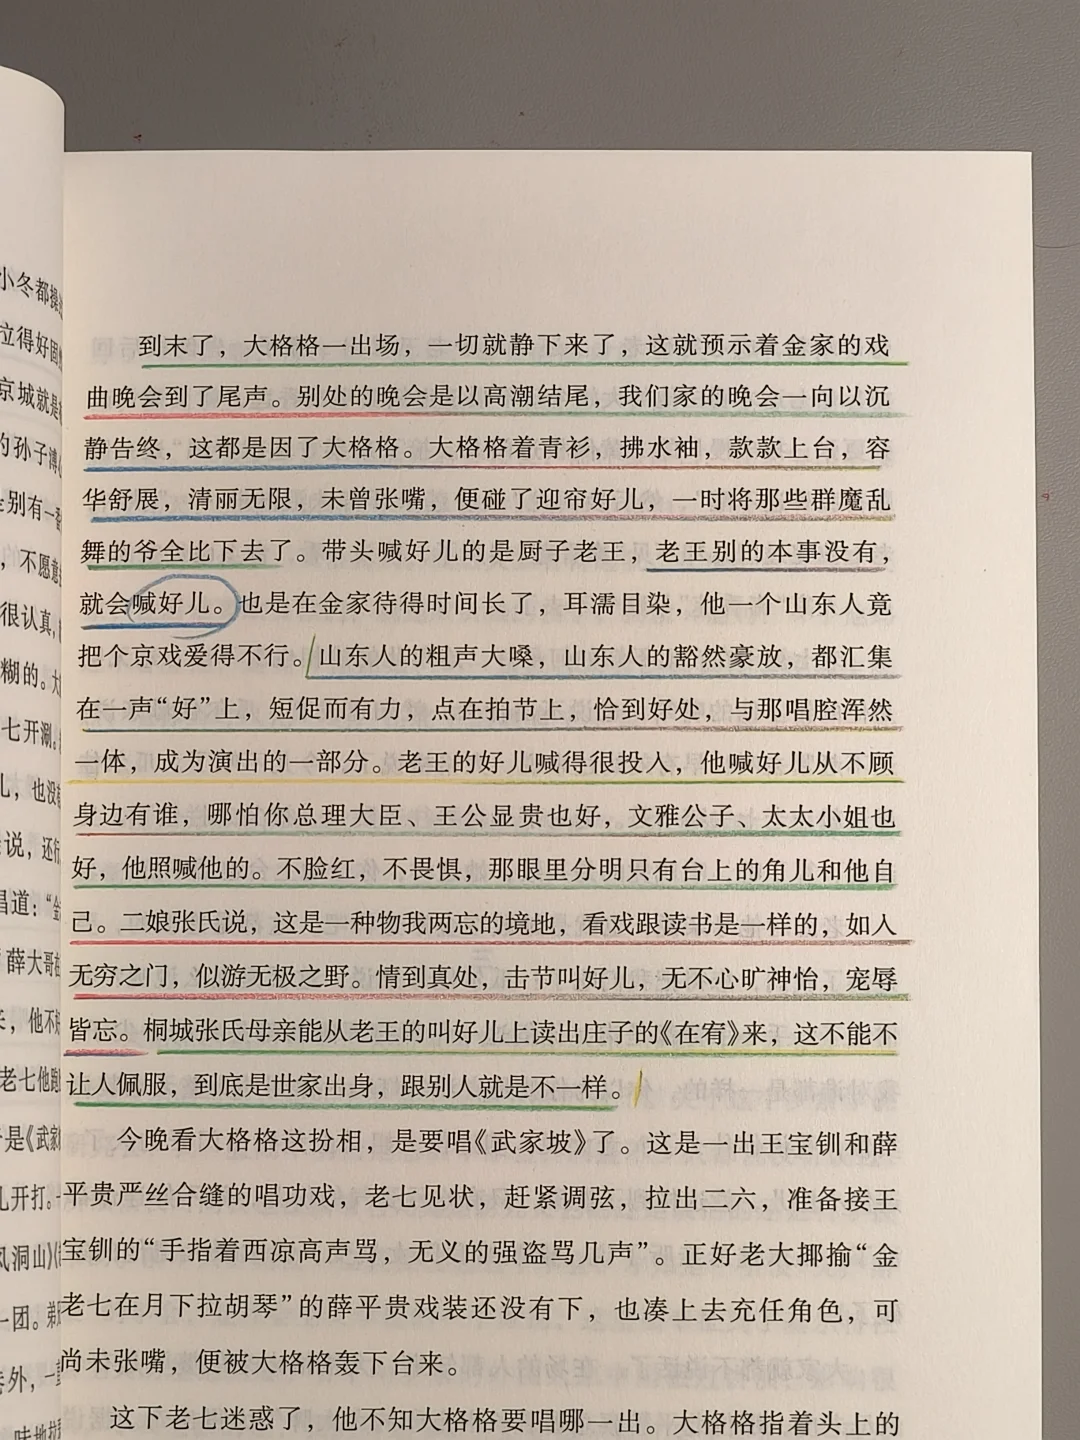 小冬都操
立得好固
京城就是
的孙子溥心
是别有一番
，不愿意
很认真，
糊的。大
七开涮。
儿，也没
说，还行
唱道：“金
薛大哥在
来，他不好
老七他跑
于是《武家
几开打。
风洞山》
一团。弟
卷外，一
味地拉
到末了，大格格一出场，一切就静下来了，这就预示着金家的戏
曲晚会到了尾声。别处的晚会是以高潮结尾，我们家的晚会一向以沉
静告终，这都是因了大格格。大格格着青衫，拂水袖，款款上台，容
华舒展，清丽无限，未曾张嘴，便碰了迎帘好儿，一时将那些群魔乱
舞的爷全比下去了。带头喊好儿的是厨子老王，老王别的本事没有，
就会喊好儿。也是在金家待得时间长了，耳濡目染，他一个山东人竟
把个京戏爱得不行。山东人的粗声大嗓，山东人的豁然豪放，都汇集
在一声“好”上，短促而有力，点在拍节上，恰到好处，与那唱腔浑然
一体，成为演出的一部分。老王的好儿喊得很投入，他喊好儿从不顾
身边有谁，哪怕你总理大臣、王公显贵也好，文雅公子、太太小姐也
好，他照喊他的。不脸红，不畏惧，那眼里分明只有台上的角儿和他自
己。二娘张氏说，这是一种物我两忘的境地，看戏跟读书是一样的，如入
无穷之门，似游无极之野。情到真处，击节叫好儿，无不心旷神怡，宠辱
皆忘。桐城张氏母亲能从老王的叫好儿上读出庄子的《在宥》来，这不能不
让人佩服，到底是世家出身，跟别人就是不一样。
今晚看大格格这扮相，是要唱《武家坡》了。这是一出王宝钏和薛
平贵严丝合缝的唱功戏，老七见状，赶紧调弦，拉出二六，准备接王
宝钏的“手指着西凉高声骂，无义的强盗骂几声”。正好老大揶揄“金
老七在月下拉胡琴”的薛平贵戏装还没有下，也凑上去充任角色，可
尚未张嘴，便被大格格轰下台来。
这下老七迷惑了，他不知大格格要唱哪一出。大格格指着头上的